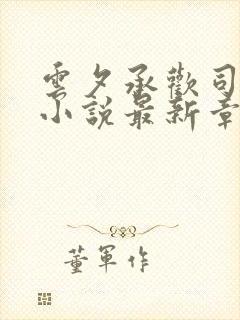 雲夕承歡司
小說最新章
董軍作